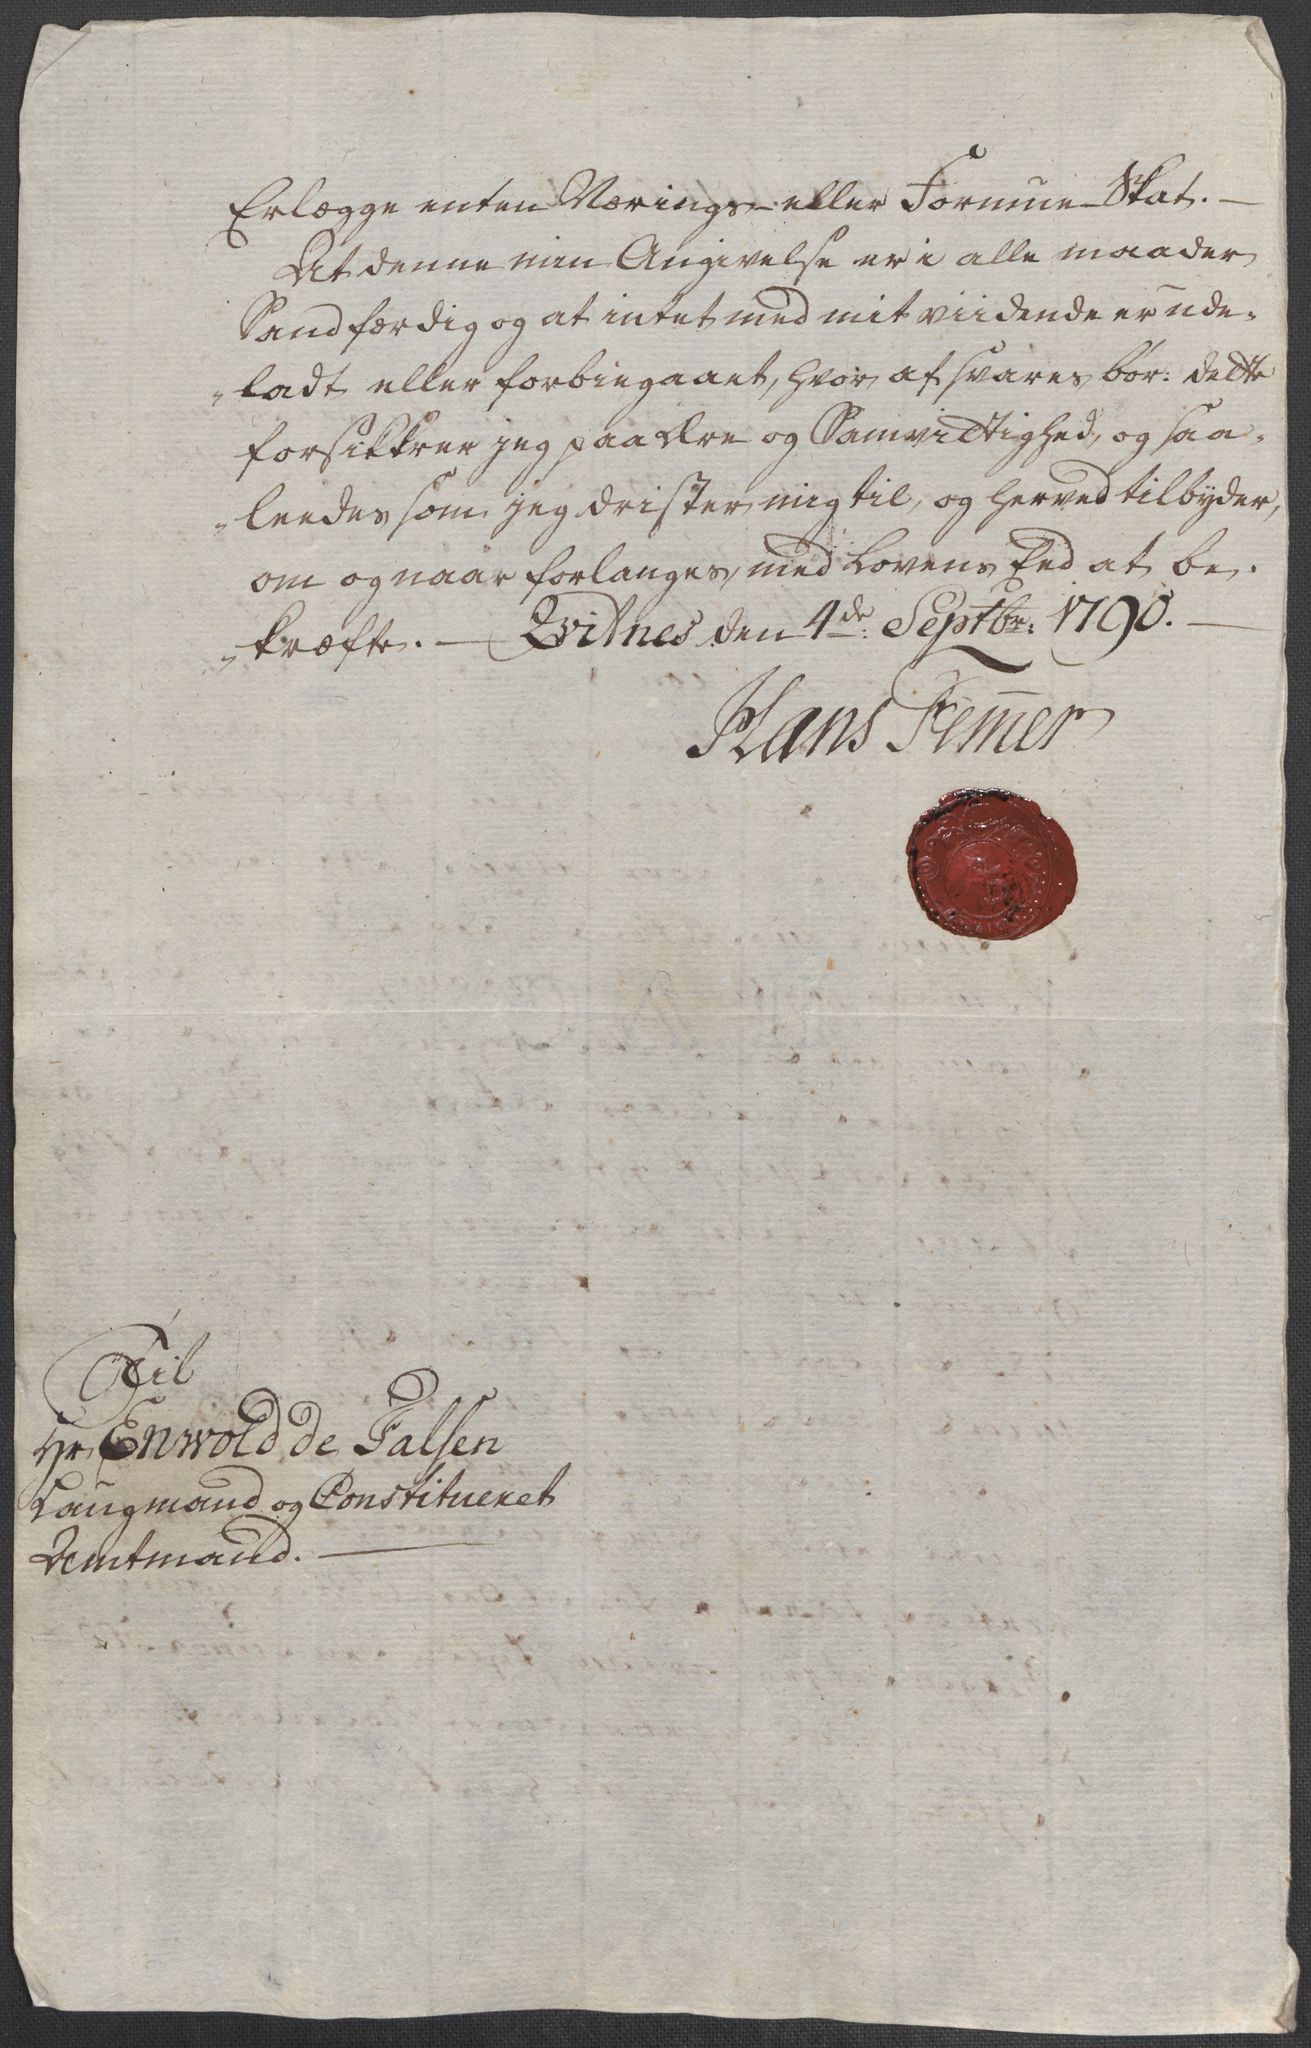 Erlægge enten Nærings- eller Formue-Skat. —
At denne min Angivelse er i alle maader
Sandfærdig og at intet med mit viidende er ude-
„ladt eller forbiegaaet, hvor af svares bør: dette
forsikkrer jeg paa Ære og Samvidtighed, og saa-
„leedes som jeg drister mig til, og herved tilbyder,
om og naar forlanges, med Lovens Eed at be-
„kræfte. — Qvitnes den 4de: Septbr: 1790. —
Hans Femer
Til
Hr Enwold de Falsen
Laugmand og Constitueret
Amtmand. —